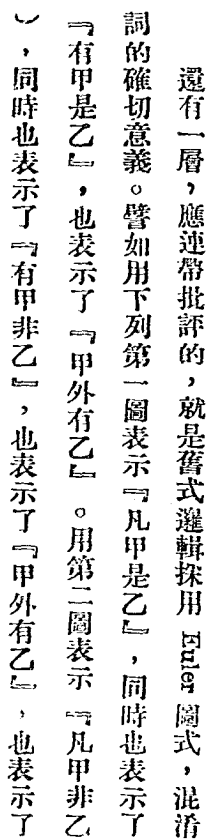 還有一層，應連帶批評的，就是舊式邏輯採用 Euler 圖式，混淆
詞的確切意義。譬如用下列第一圖表示『凡甲是乙』，同時也表示了
『有甲是乙』，也表示了『甲外有乙』。用第二圖表示『凡甲非乙
』，同時也表示了『有甲非乙』，也表示了『甲外有乙』，也表示了